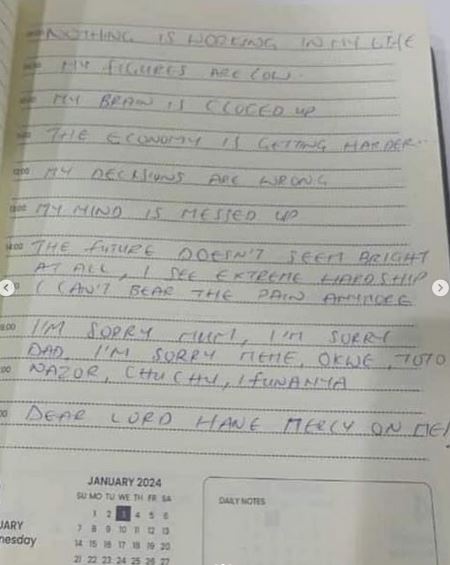 NOTHING IS WORKING IN MY LIFE
MY FIGURES ARE LOW.
MY BRAIN IS CLOGED UP
THE ECONOMY IS GETTING HARDER..
12:00 MY DECISIONS ARE WRONG
13:00 MY MIND IS MESSED UP
14:00 THE FUTURE DOESN'T SEEM BRIGHT
AT ALL, I SEE EXTREME HARDSHIP
I CAN'T BEAR THE PAIN ANYMORE
I'M SORRY MUM, I'M SORRY
DAD, I'M SORRY MEME, OKWE, TOTO
NAZOR, CHUCHU, IFUNANYA
DEAR LORD HAVE MERCY ON ME!
JANUARY 2024
SU MO TU WE TH FR SA
1 2 3 4 5 6
7 8 9 10 11 12 13
14 15 16 17 18 19 20
21 22 23 24 25 26 27
DAILY NOTES